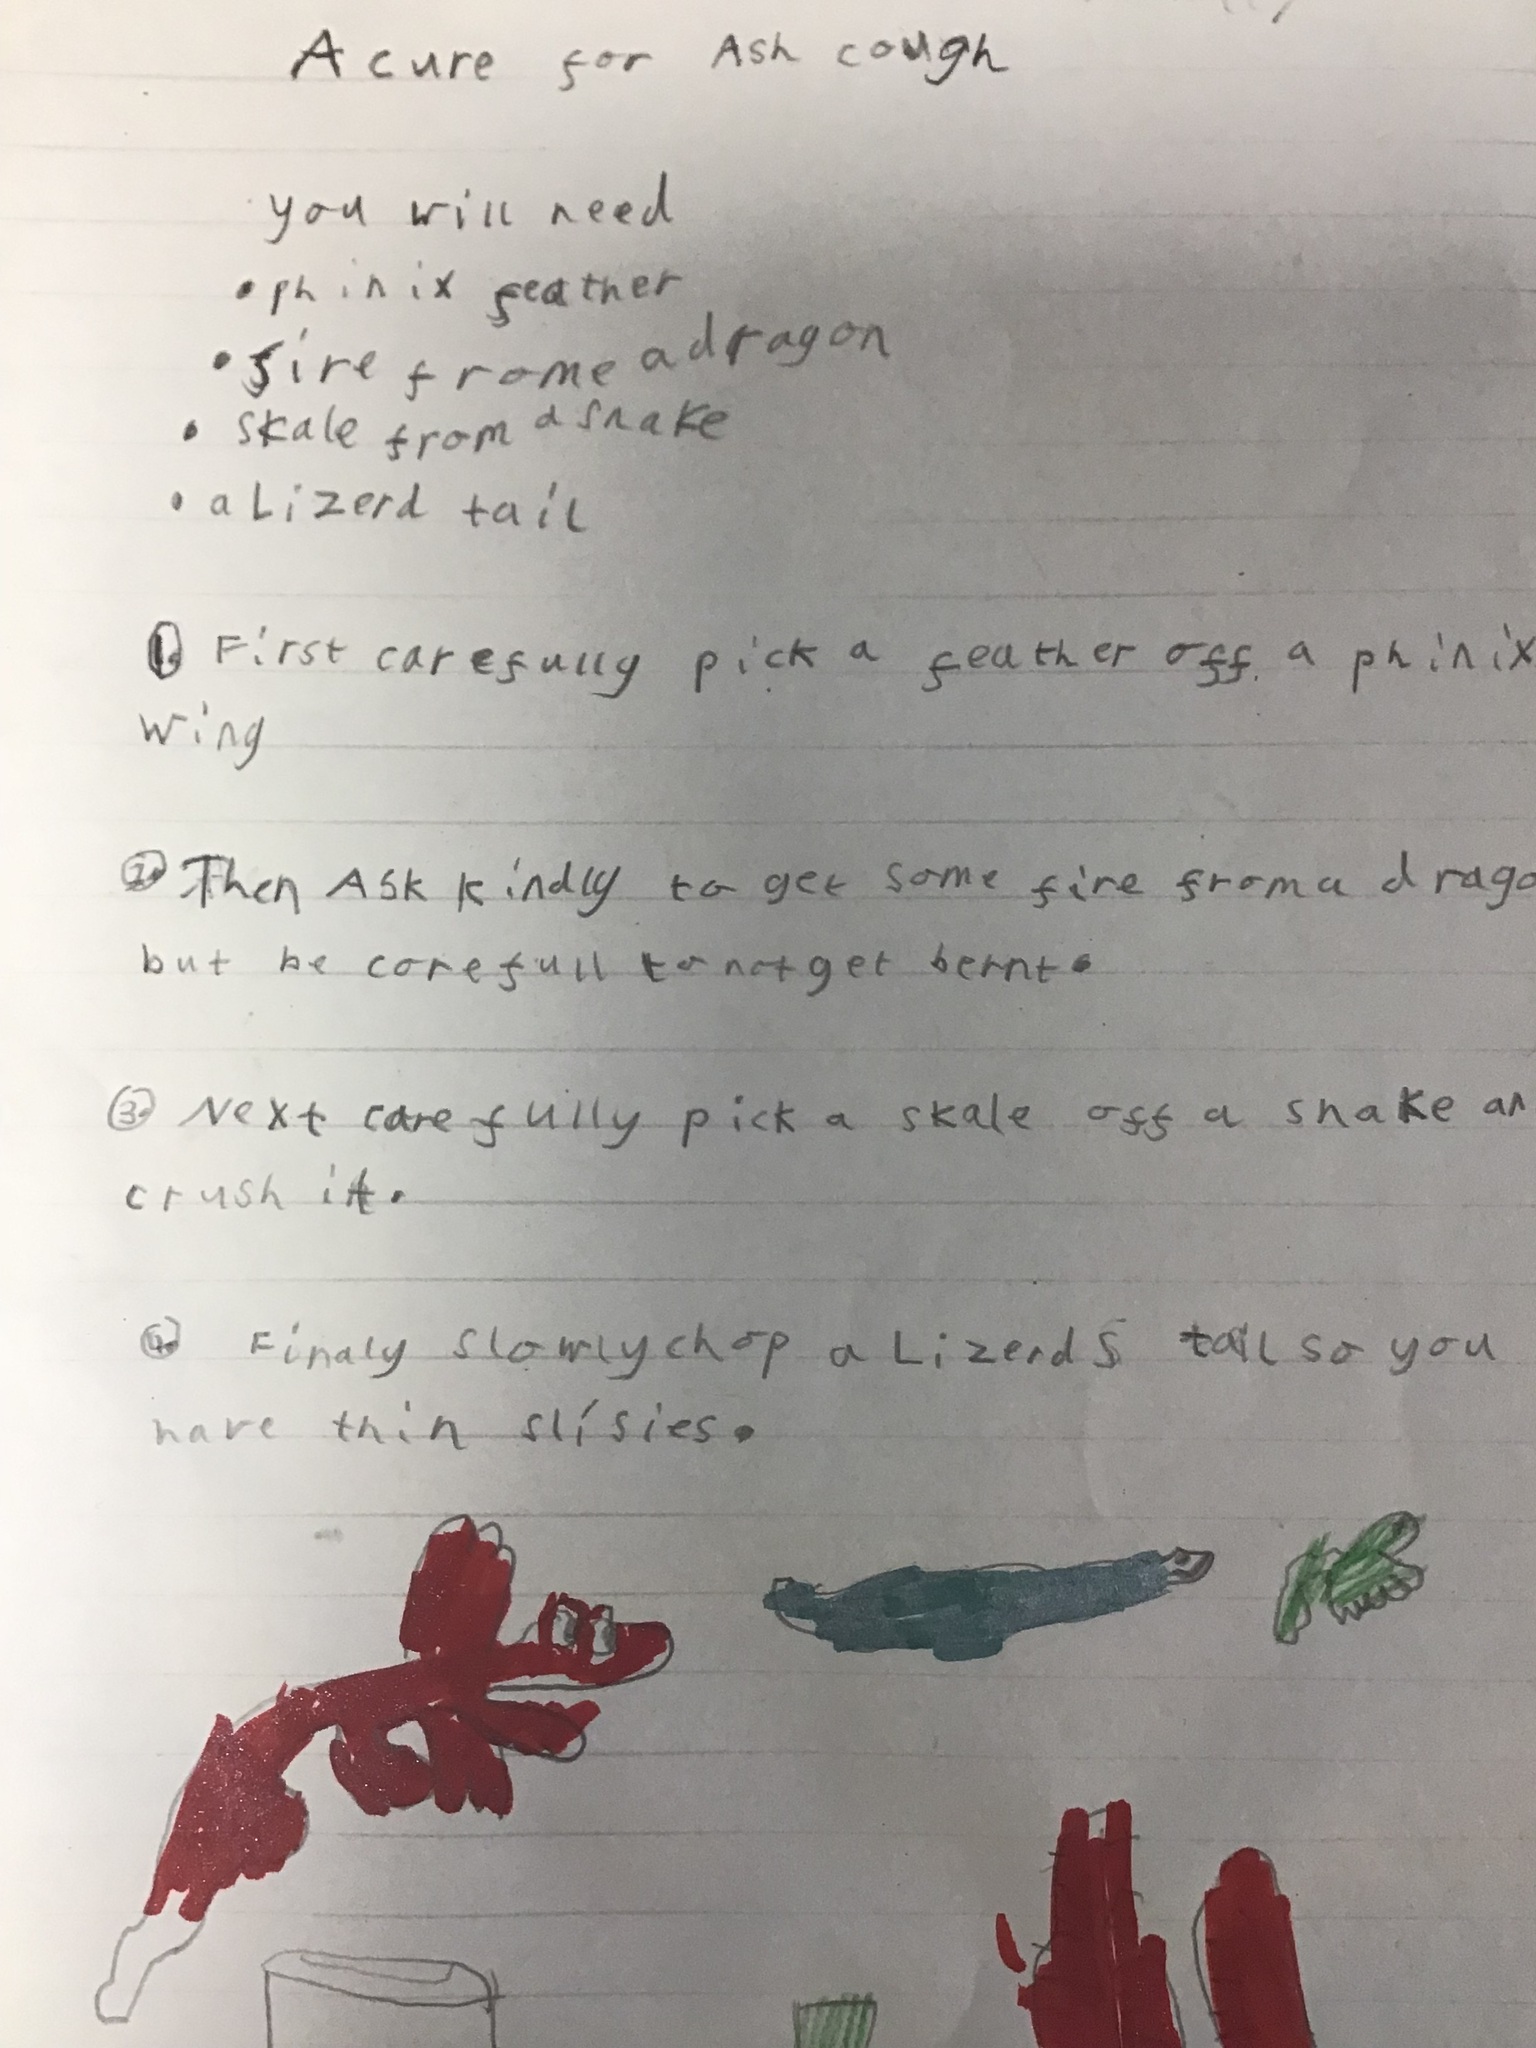 A cure for Ash cough
you will need
• phinix feather
• fire frome a dragon
• skale from a snake
• a Lizerd tail
1. First carefully pick a feather off a phinix
wing
2. Then Ask kindly to get some fire from a drago
but be carefull to not get bernt.
3. Next carefully pick a skale off a snake an
crush it.
4. Finaly slowly chop a Lizerds tail so you
have thin slisies.